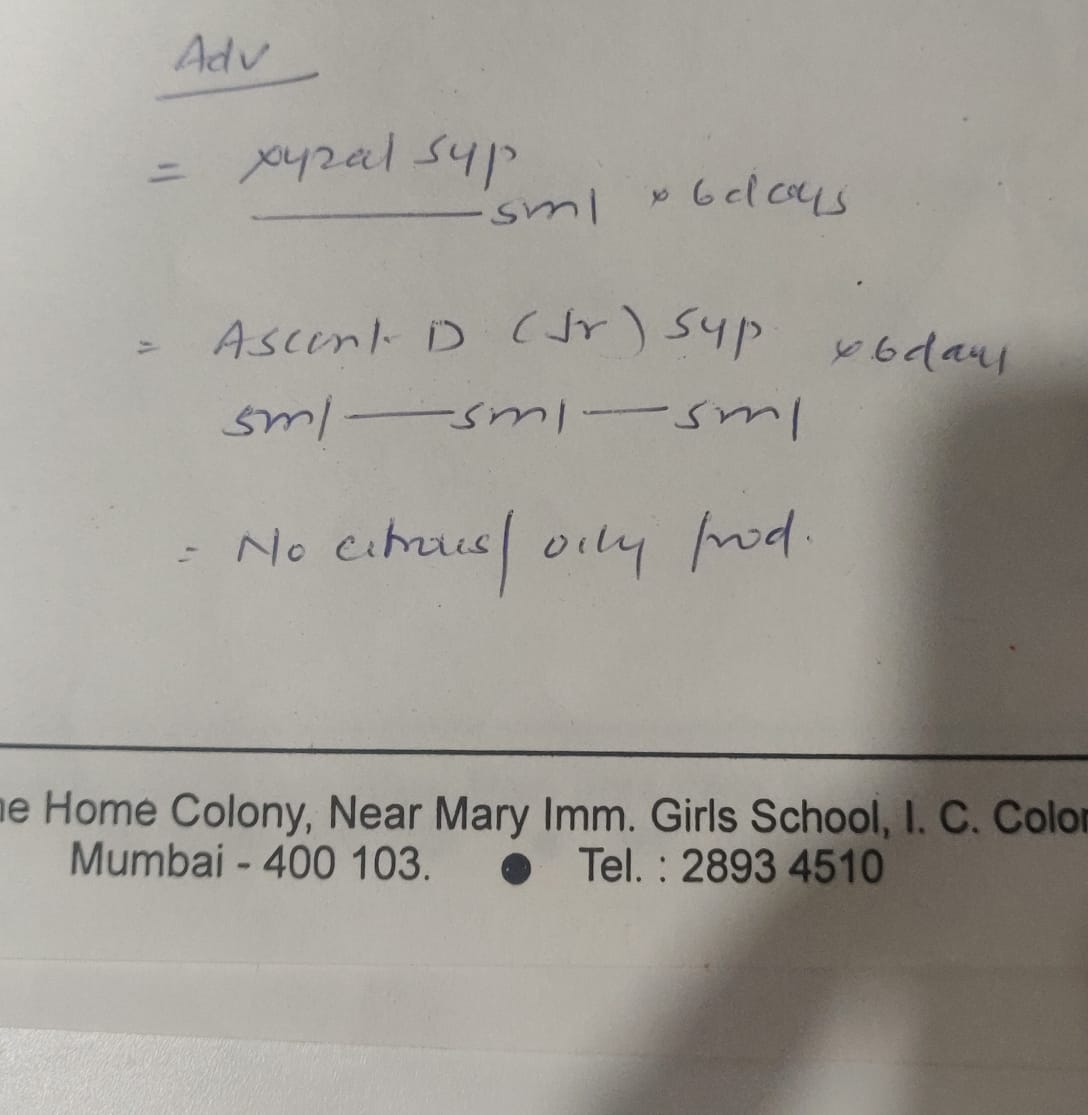 Adv
= xyzal syp
5ml x 6 days
= Ascent-D (Jr) syp x 6 days
5ml — 5ml — 5ml
= No citrous/ oily prod.
e Home Colony, Near Mary Imm. Girls School, I. C. Colon
Mumbai - 400 103. ● Tel. : 2893 4510